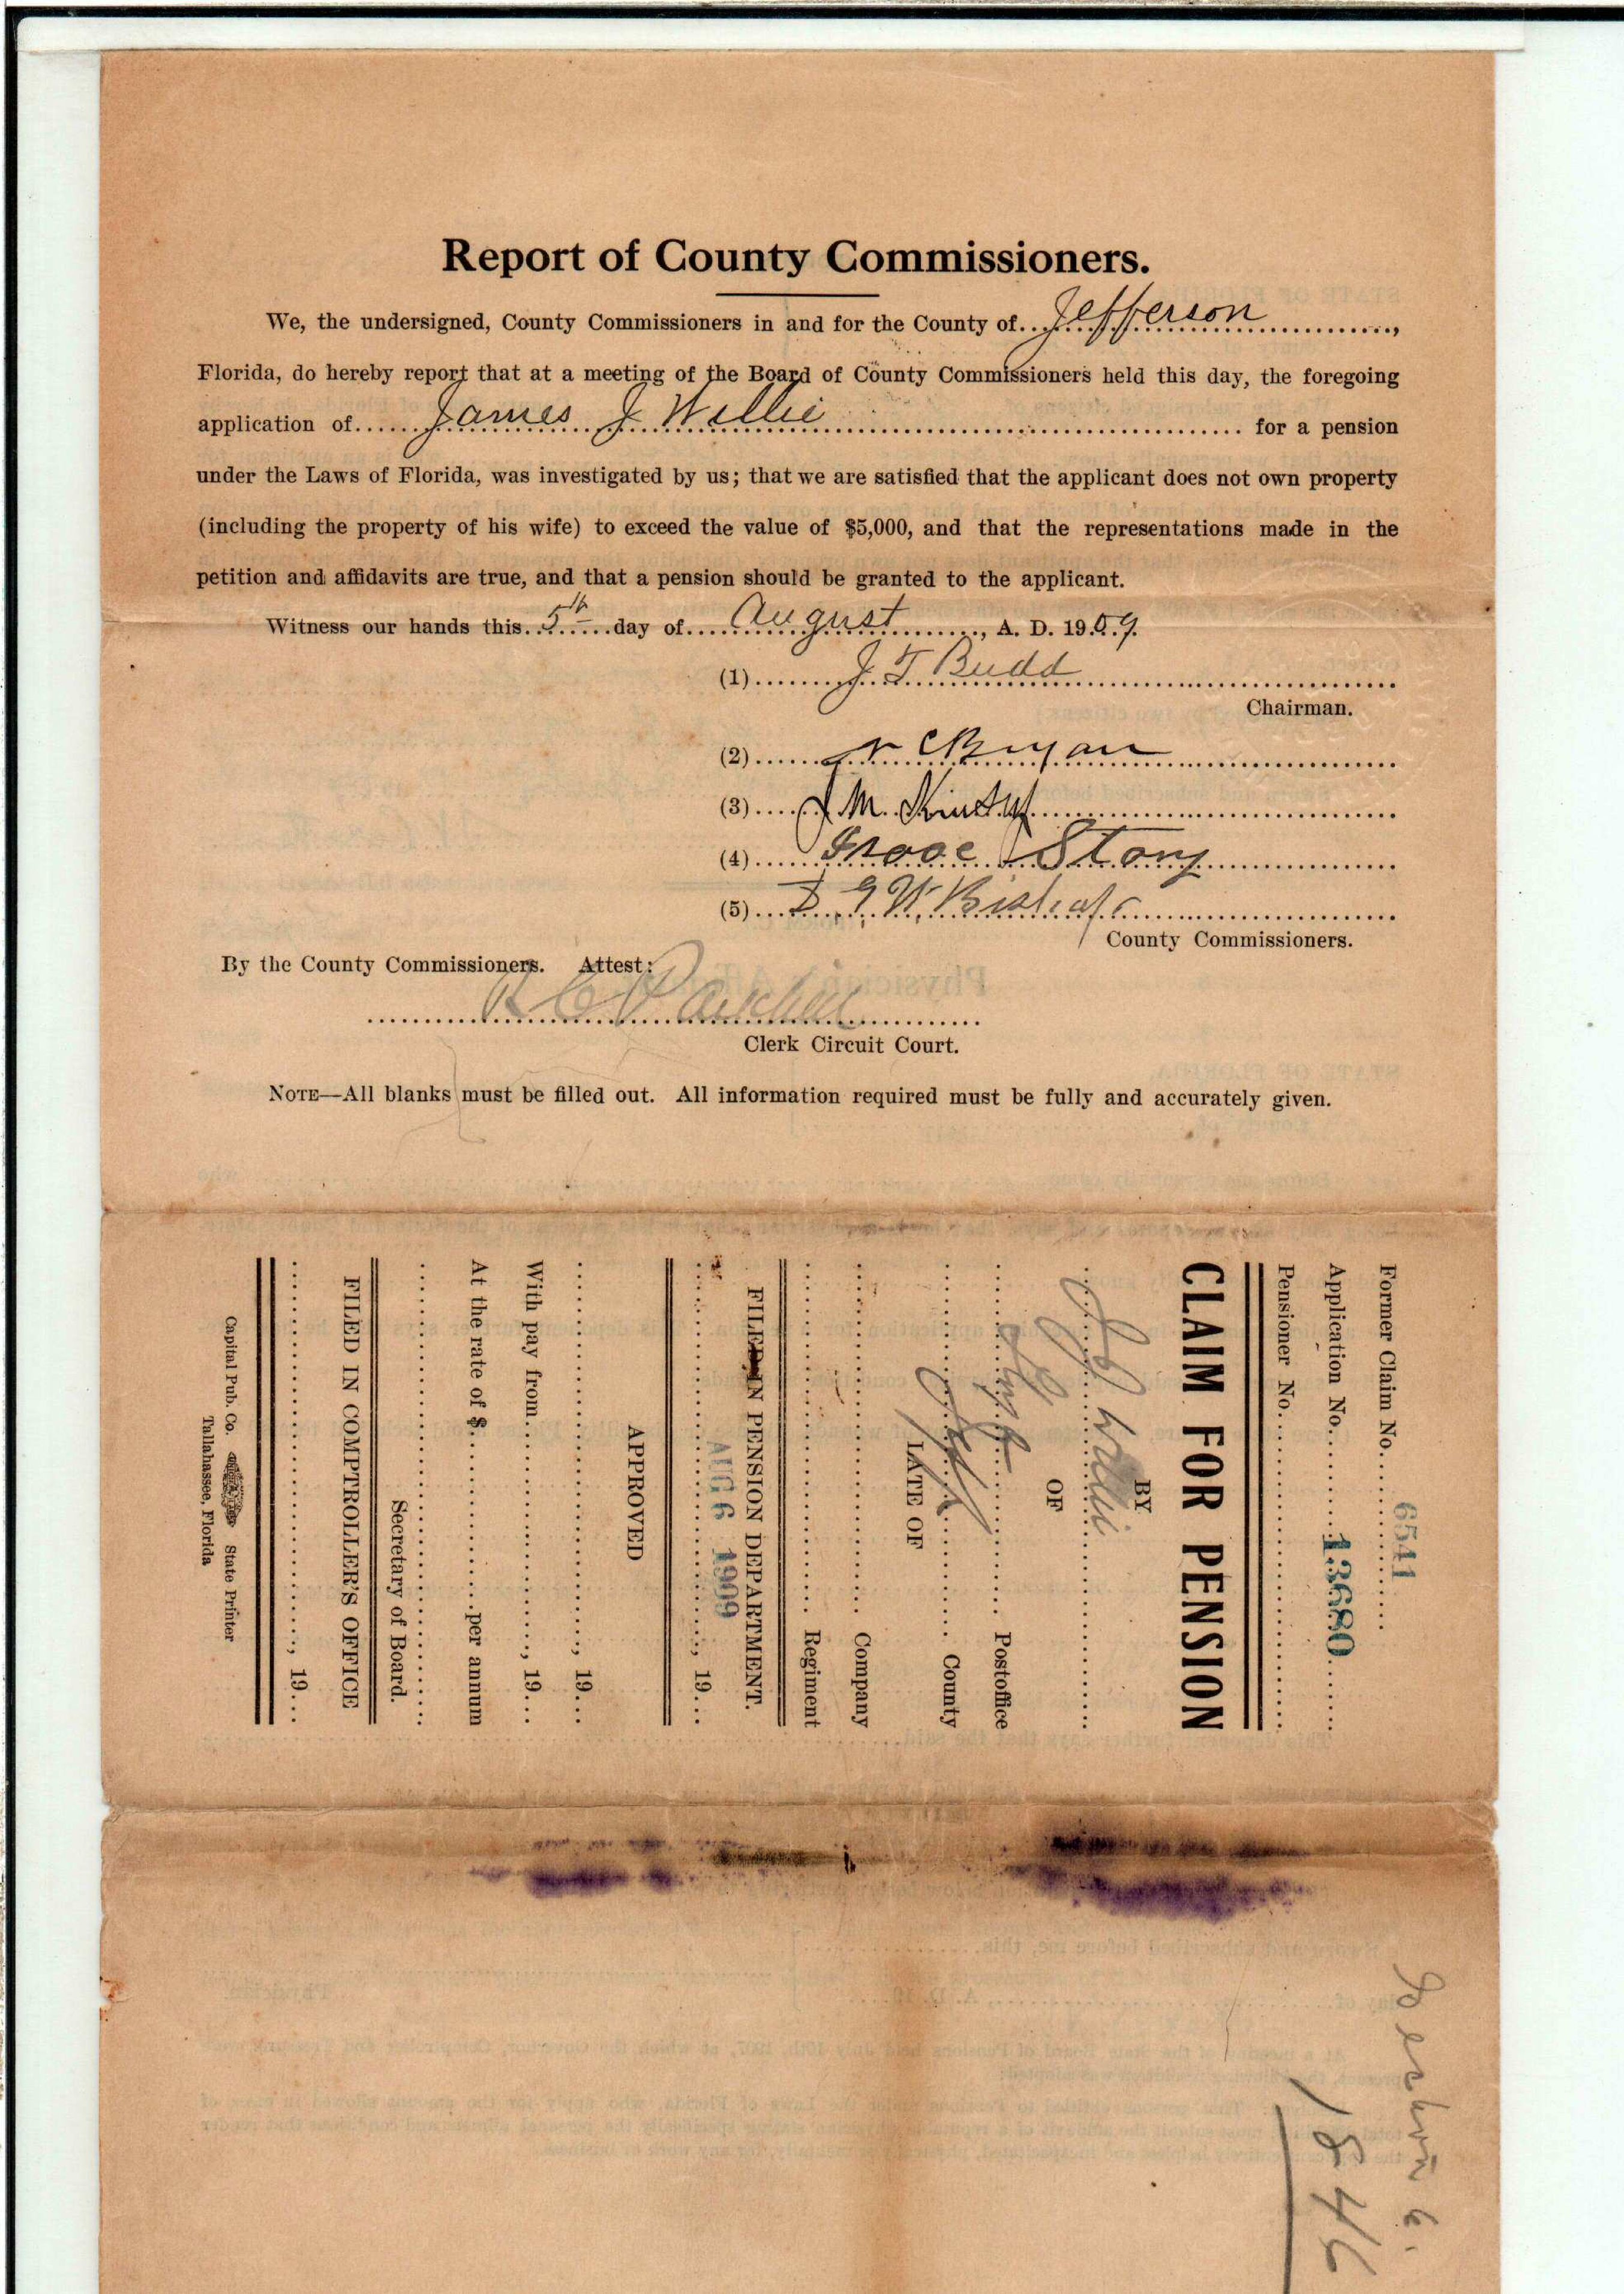 Report of County Commissioners.
We, the undersigned, County Commissioners in and for the County of Jefferson,
Florida, do hereby report that at a meeting of the Board of County Commissioners held this day, the foregoing
application of James J Willie for a pension
under the Laws of Florida, was investigated by us; that we are satisfied that the applicant does not own property
(including the property of his wife) to exceed the value of $5,000, and that the representations made in the
petition and affidavits are true, and that a pension should be granted to the applicant.
Witness our hands this 5th day of August, A. D. 1909.
(1) J T Budd
Chairman.
(2) Bryan
(3) J M.
(4) Story
(5) Bishop
County Commissioners.
By the County Commissioners. Attest:
Clerk Circuit Court.
NOTE—All blanks must be filled out. All information required must be fully and accurately given.
Former Claim No. 6541
Application No. 13680
Pensioner No.
CLAIM FOR PENSION
BY
J J Willie
OF
Postoffice
County
LATE OF
Company
Regiment
FILED IN PENSION DEPARTMENT.
AUG 6 1909
, 19
APPROVED
, 19
With pay from , 19
At the rate of $ per annum
Secretary of Board.
FILED IN COMPTROLLER'S OFFICE
, 19
Capital Pub. Co. State Printer
Tallahassee, Florida
1846